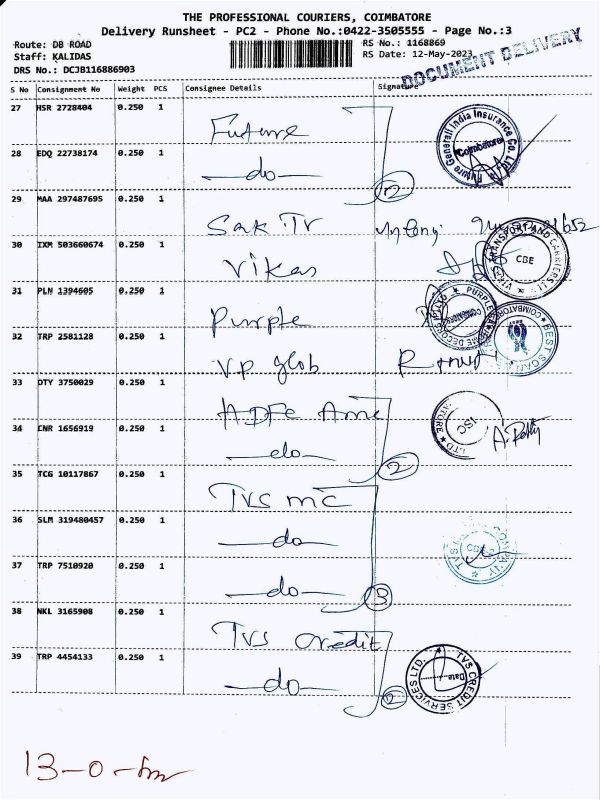 THE PROFESSIONAL COURIERS, COIMBATORE
Delivery Runsheet - PC2 - Phone No.:0422-3505555 - Page No.:3
Route: DB ROAD
Staff: KALIDAS
DRS No.: DCJB116886903
RS No.: 1168869
RS Date: 12-May-2023
DOCUMENT DELIVERY
S No Consignment No Weight PCS Consignee Details Signature
27 HSR 2728404 0.250 1
Future
Future Generali India Insurance Co. Ltd.
Coimbatore
28 EDQ 22738174 0.250 1
-do-
2
29 MAA 297487695 0.250 1
Sak TV
30 IXM 503660674 0.250 1
Vikas
TRANSPORT AND CARRIERS
CBE
31 PLN 1394605 0.250 1
Purple
PURPLE
COIMBATORE
BEST SCAN
32 TRP 2581128 0.250 1
VP glob
33 OTY 3750029 0.250 1
HDFC Ame
ISC
34 CNR 1656919 0.250 1
-do-
2
35 TCG 10117867 0.250 1
TVS mc
36 SLM 319480457 0.250 1
-do-
37 TRP 7510920 0.250 1
-do-
3
38 NKL 3165908 0.250 1
TVS credit
39 TRP 4454133 0.250 1
-do-
2
TVS CREDIT SERVICES LTD.
Date